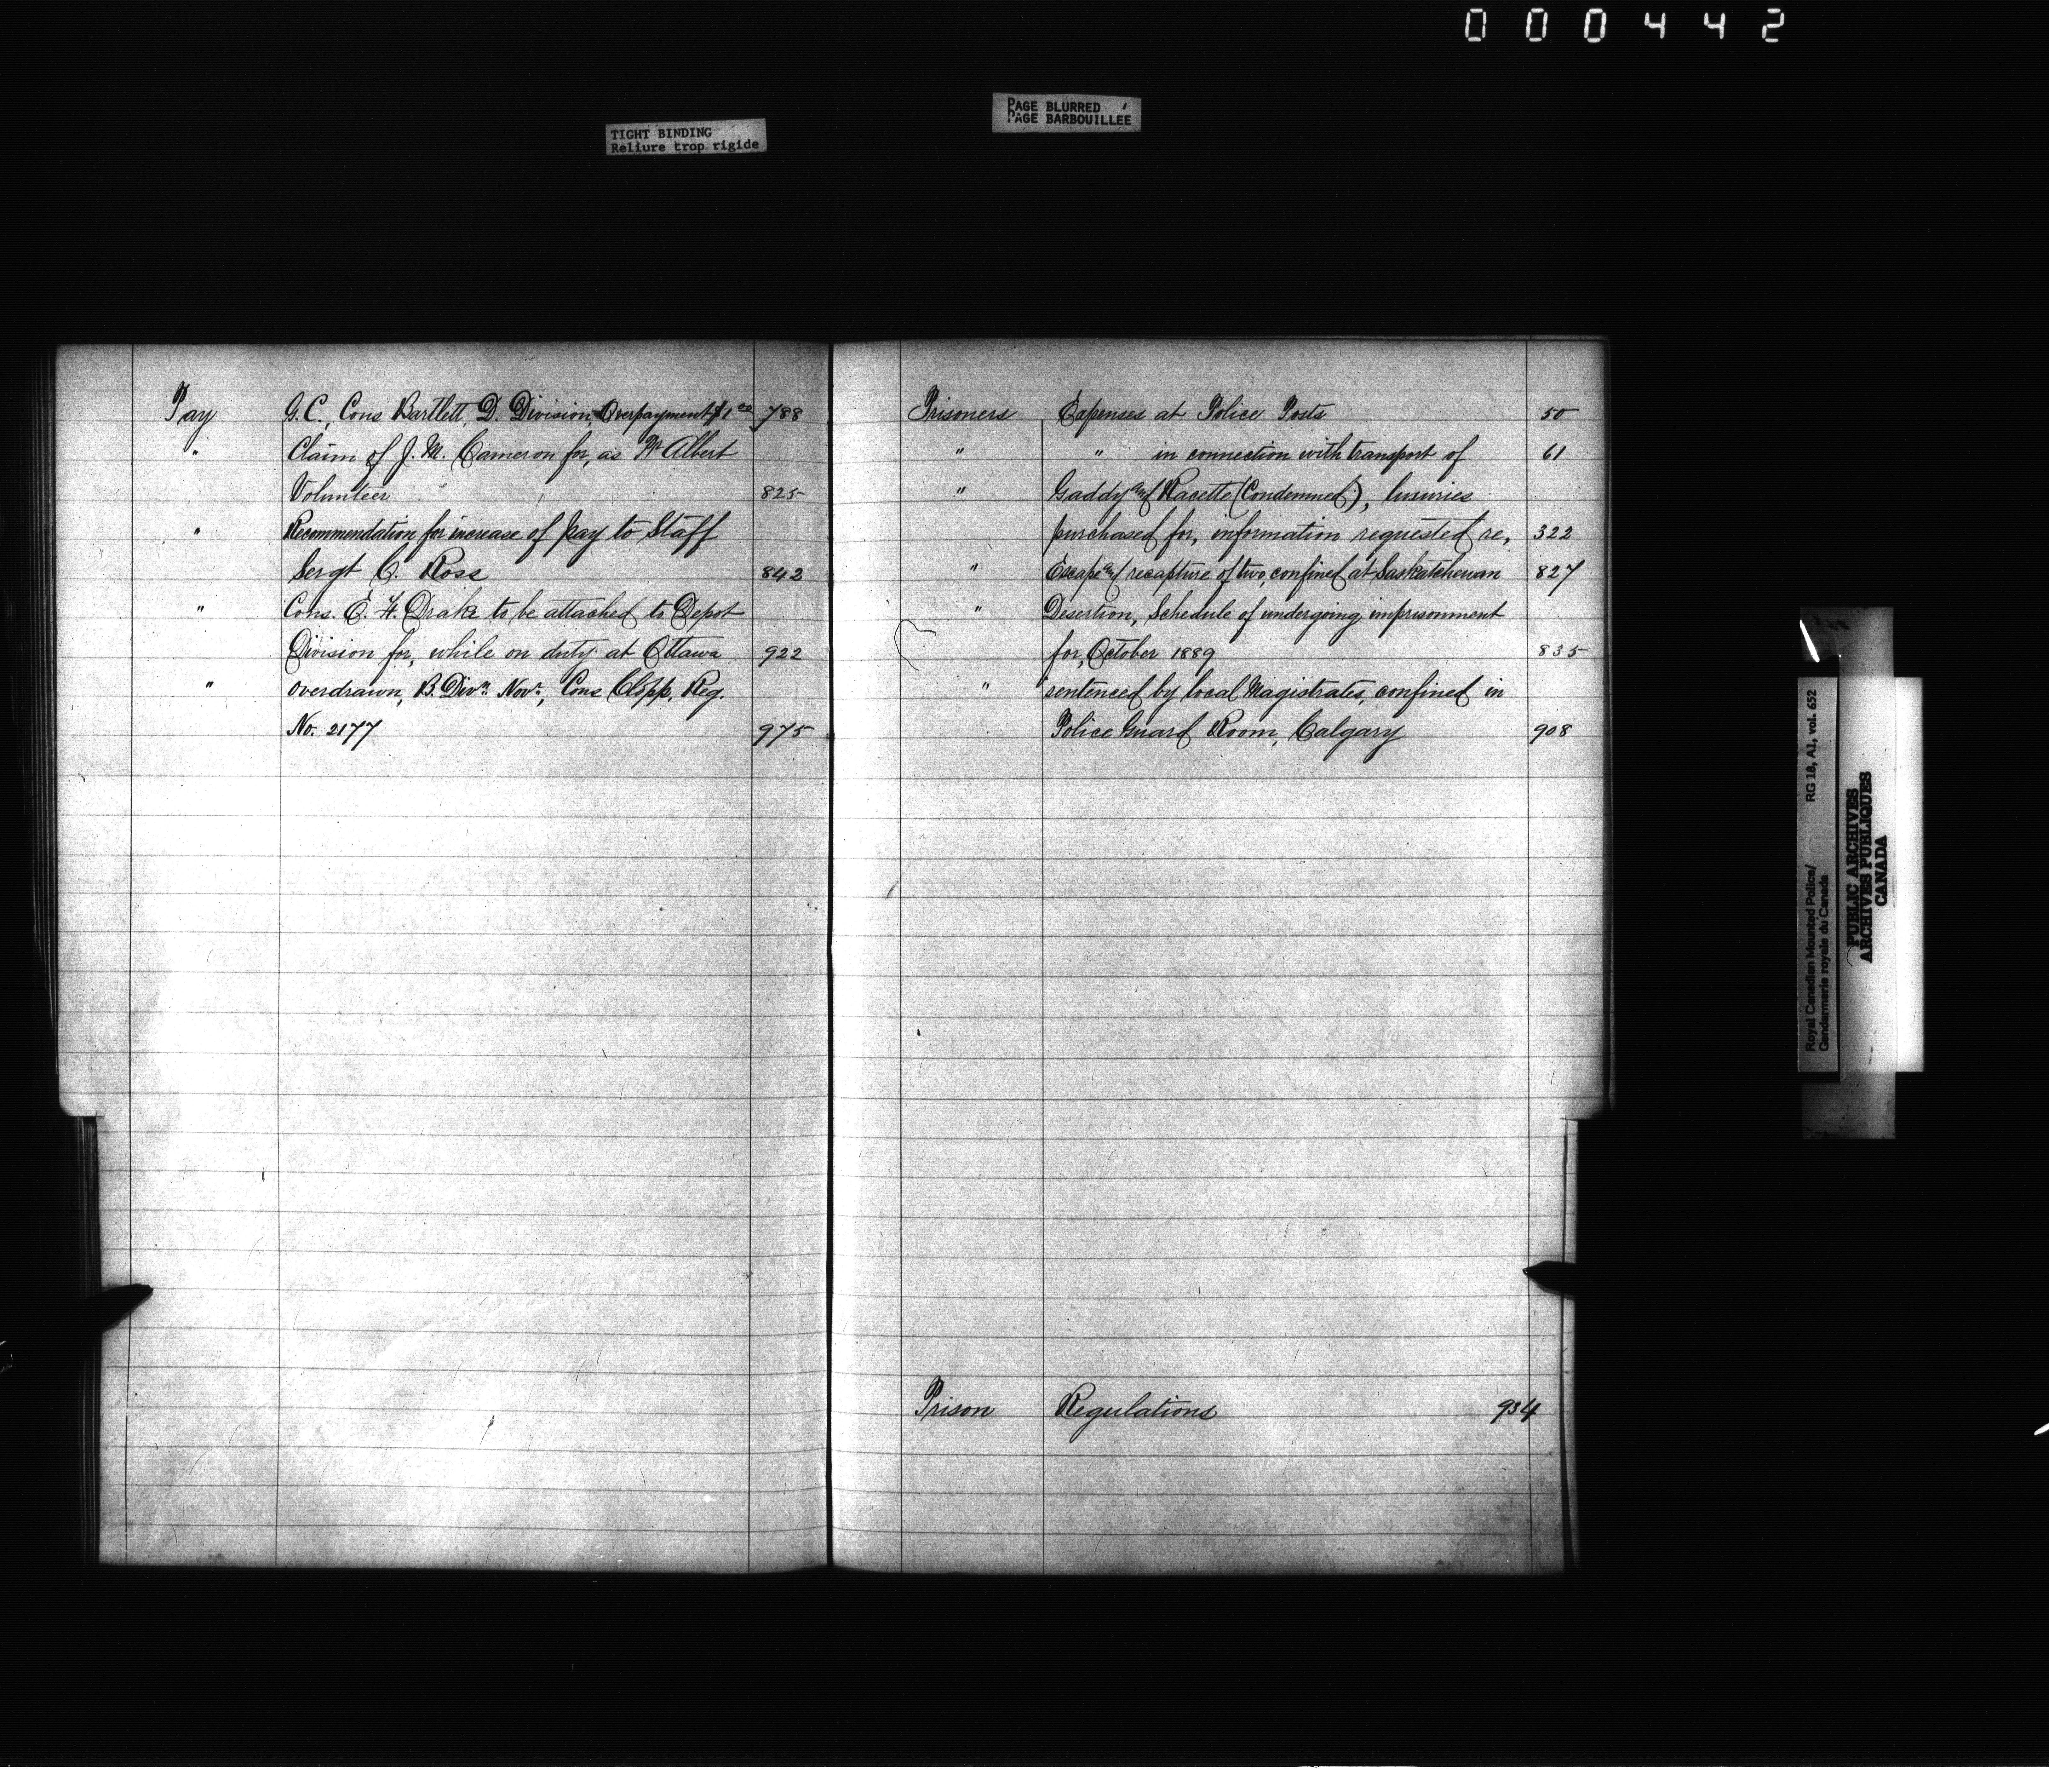 000442
TIGHT BINDING
Reliure trop rigide
PAGE BLURRED
PAGE BARBOUILLÉE
Pay G.C., Cons Bartlett, D. Division, Overpayment $1.00 788
" Claim of J. M. Cameron for, as Pr Albert
Volunteer 825
" Recommendation for increase of pay to Staff
Sergt C. Ross 842
" Cons. E. H. Drake to be attached to Depot
Division for, while on duty at Ottawa 922
" overdrawn, B. Divn. Novr., Cons Clopp, Reg.
No. 2177 975
Prisoners Expenses at Police Posts 50
" " in connection with transport of 61
" Gaddy and Racette (Condemned), luxuries
purchased for, information requested re, 322
" Escape and recapture of two, confined at Saskatchewan 827
" Desertion, Schedule of undergoing imprisonment
for, October 1889 835
" sentenced by local Magistrates, confined in
Police Guard Room, Calgary 908
Prison Regulations 934
Royal Canadian Mounted Police/ RG 18, A1, vol. 652
Gendarmerie royale du Canada
PUBLIC ARCHIVES
ARCHIVES PUBLIQUES
CANADA